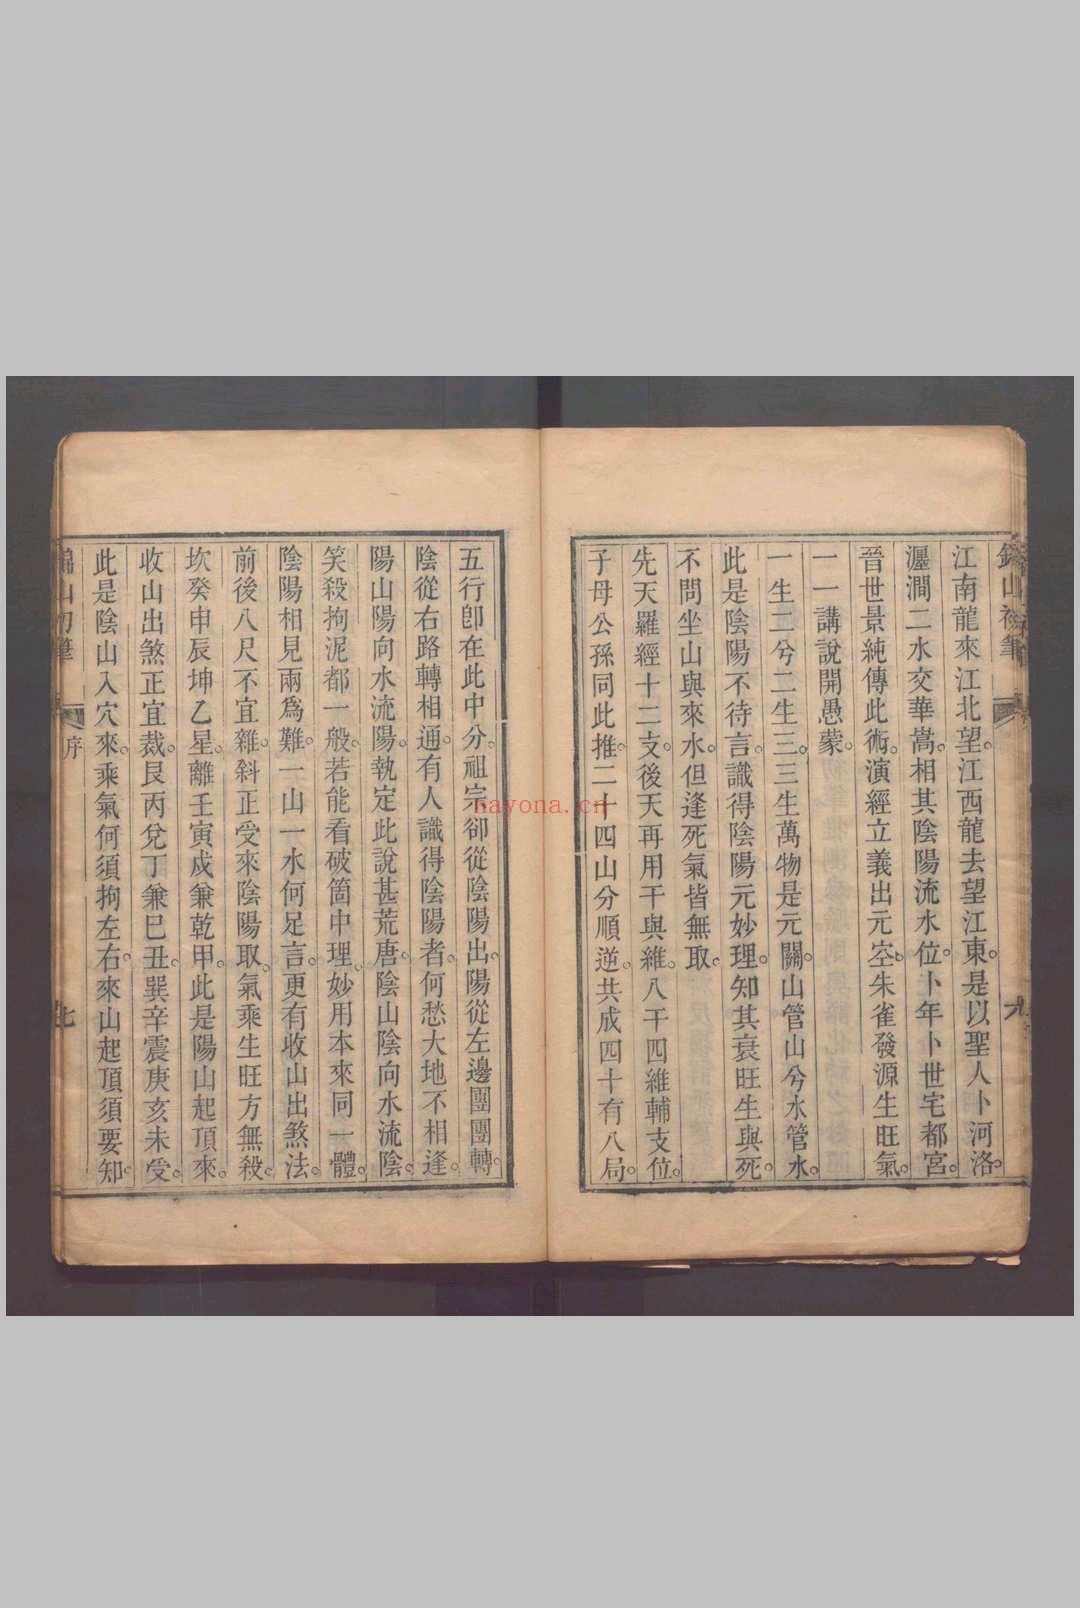 江南龍來江北望。江西龍去望江東。是以聖人卜河洛。
瀍澗二水交華嵩。相其陰陽流水位。卜年卜世宅都宮。
晉世景純傳此術。演經立義出元空。朱雀發源生旺氣。
一一講說開愚蒙。
一生二兮二生三。三生萬物是元關。山管山兮水管水。
此是陰陽不待言。識得陰陽元妙理。知其衰旺生與死。
不問坐山與來水。但逢死氣皆無取。
先天羅經十二支。後天再用干與維。八干四維輔支位。
子母公孫同此推。二十四山分順逆。共成四十有八局。
五行卽在此中分。祖宗卻從陰陽出。陽從左邊團團轉。
陰從右路轉相通。有人識得陰陽者。何愁大地不相逢。
陽山陽向水流陽。執定此說甚荒唐。陰山陰向水流陰。
笑殺拘泥都一般。若能看破箇中理。妙用本來同一體。
陰陽相見兩爲難。一山一水何足言。更有收山出煞法。
前後八尺不宜雜。斜正受來陰陽取。氣乘生旺方無殺。
坎癸申辰坤乙星。離壬寅戍兼乾甲。此是陽山起頂來。
收山出煞正宜裁。艮丙兌丁兼巳丑。巽辛震庚亥未受。
此是陰山入穴來。乘氣何須拘左右。來山起頂須要知。
序
七
nayona.cn